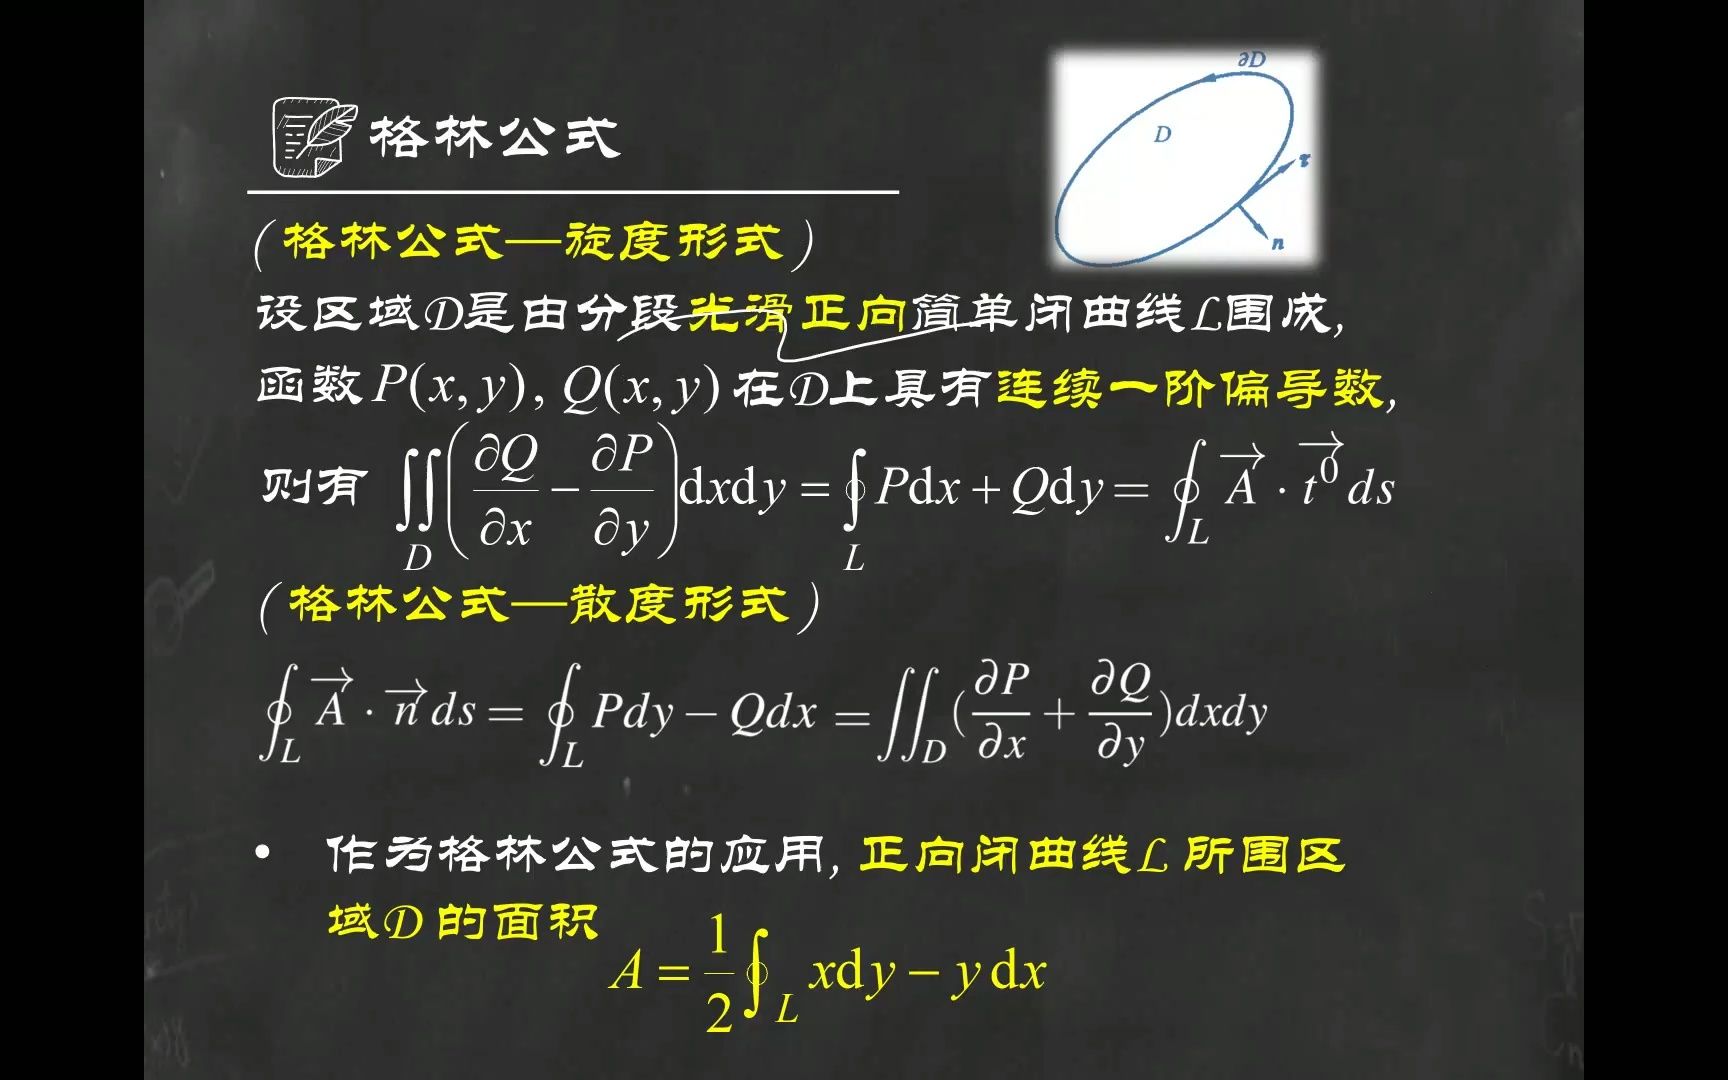 格林公式
∂D
D
τ
n
(格林公式—旋度形式)
设区域D是由分段光滑正向简单闭曲线L围成,
函数 P(x, y), Q(x, y) 在D上具有连续一阶偏导数,
则有 ∬_D (∂Q/∂x − ∂P/∂y) dxdy = ∮_L Pdx + Qdy = ∮_L A⃗ · t⃗⁰ ds
(格林公式—散度形式)
∮_L A⃗ · n⃗ ds = ∮_L Pdy − Qdx = ∬_D (∂P/∂x + ∂Q/∂y)dxdy
• 作为格林公式的应用, 正向闭曲线L 所围区
域D 的面积
A = 1/2 ∮_L xdy − ydx